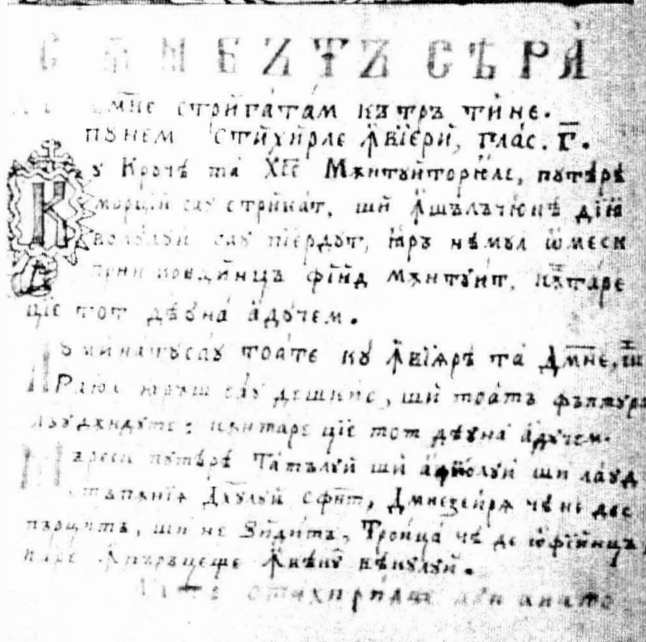 СѢМБѪТЪ СѢРА
Дмне стригатам кътръ тине.
Пꙋнем стихирле ꙟвїерїй, глас. г҃.
Кꙋ Крꙋчѣ та Хс҃е Мѫнтꙋиторюле, пꙋтѣрѣ
морций саꙋ стрикат, ши ꙟшълъчюнѣ дїꙗ
волꙋлꙋй саꙋ пїердꙋт, ꙗръ нѣмꙋл ѡменеск
прин крединцъ фїинд мѫнтꙋит, кѫнтаре
цїе тот дѣꙋна адꙋчем.
Лꙋминатꙋсаꙋ тоате кꙋ ꙟвїѧрѣ та Дмне, ши
Раюл ꙗръш саꙋ дешкис, ши тоатъ фъптꙋра
лъꙋдѫндꙋте: кѫнтаре цїе тот дѣꙋна адꙋчем.
Мъреск пꙋтѣрѣ Татълꙋй ши а Фїюлꙋй ши лаꙋд
стъпѫнїѧ Дхꙋлꙋй сфнт, Дмнезеирѧ чѣ не дес
пърцитъ, ши не зидитъ, Троица чѣ де ѡ фїинцъ,
каре ꙟпъръцеще ꙟ вѣкꙋл вѣкꙋлꙋй.
Алте стихирї